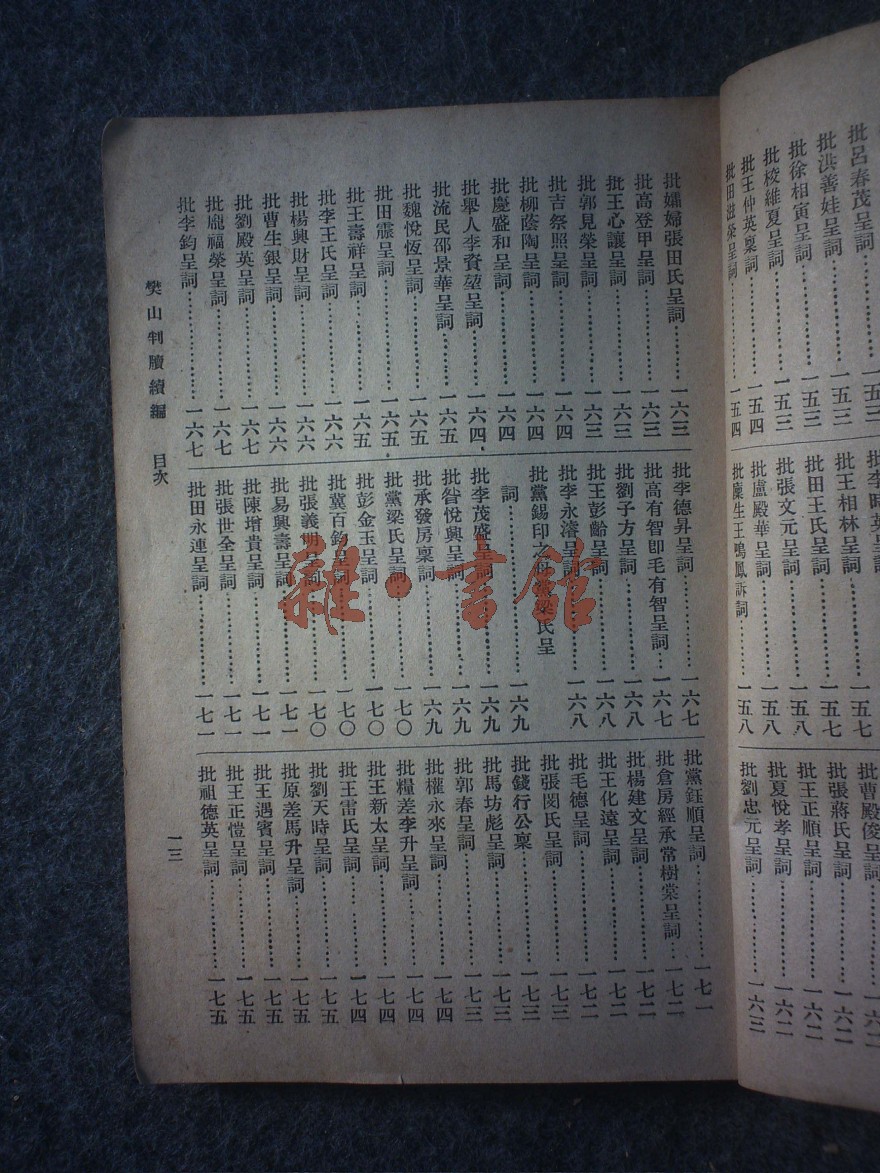 批呂春茂呈詞
批洪善娃呈詞……一五三
批徐相寅呈詞……一五三
批梭維夏呈詞……一五三
批王仲英稟詞……一五四
批田滋榮呈詞……一五四
批王相林呈詞……一五七
批田王氏呈詞……一五七
批張文元呈詞……一五八
批盧殿華呈詞……一五八
批廩生王鳴鳳訴詞……一五八
批曹殿俊呈詞……一六二
批張蔣氏呈詞……一六二
批王正順呈詞……一六二
批夏悅孝呈詞……一六二
批劉忠元呈詞……一六三
批孀婦張田氏呈詞……一六三
批高登甲呈詞……一六三
批王心讓呈詞……一六三
批郭見榮呈詞……一六三
批吉祭照呈詞……一六四
批柳蔭陶呈詞……一六四
批慶盛和呈詞……一六四
批舉人李資堃呈詞……一六四
批流民邵景華呈詞……一六五
批魏悅恆呈詞……一六五
批田震呈詞……一六五
批王壽祥呈詞……一六五
批李王氏呈詞……一六六
批楊興財呈詞……一六六
批曹生銀呈詞……一六六
批劉殿英呈詞……一六七
批龐福榮呈詞……一六七
批李鈞呈詞……一六七
批李德昇呈詞……一六七
批高有智卽毛有智呈詞……一六七
批劉子方呈詞……一六八
批王彭齡呈詞……一六八
批李永濬呈詞……一六八
批黨錫印之母黨梁氏呈
詞……一六九
批李茂盛呈詞……一六九
批昝悅興呈詞……一六九
批承發房稟詞……一六九
批黨梁氏呈詞……一七〇
批彭金玉呈詞……一七〇
批冀百鈞呈詞……一七〇
批張義明呈詞……一七〇
批易興壽呈詞……一七一
批陳增貴呈詞……一七一
批張世全呈詞……一七一
批田永連呈詞……一七一
批黨鈺順呈詞……一七一
批倉房經承常樹棠呈詞……一七二
批楊建文呈詞……一七二
批王化遠呈詞……一七二
批毛德呈詞……一七二
批張閔氏呈詞……一七三
批錢行公稟……一七三
批馬坊彪呈詞……一七三
批郭春呈詞……一七三
批權永來呈詞……一七四
批糧差李升呈詞……一七四
批王新太呈詞……一七四
批王雷氏呈詞……一七四
批劉天時呈詞……一七五
批原差馬升呈詞……一七五
批王遇賓呈詞……一七五
批王正愷呈詞……一七五
批祖德英呈詞……一七五
樊山判牘續編 目次
一三
雜·書館